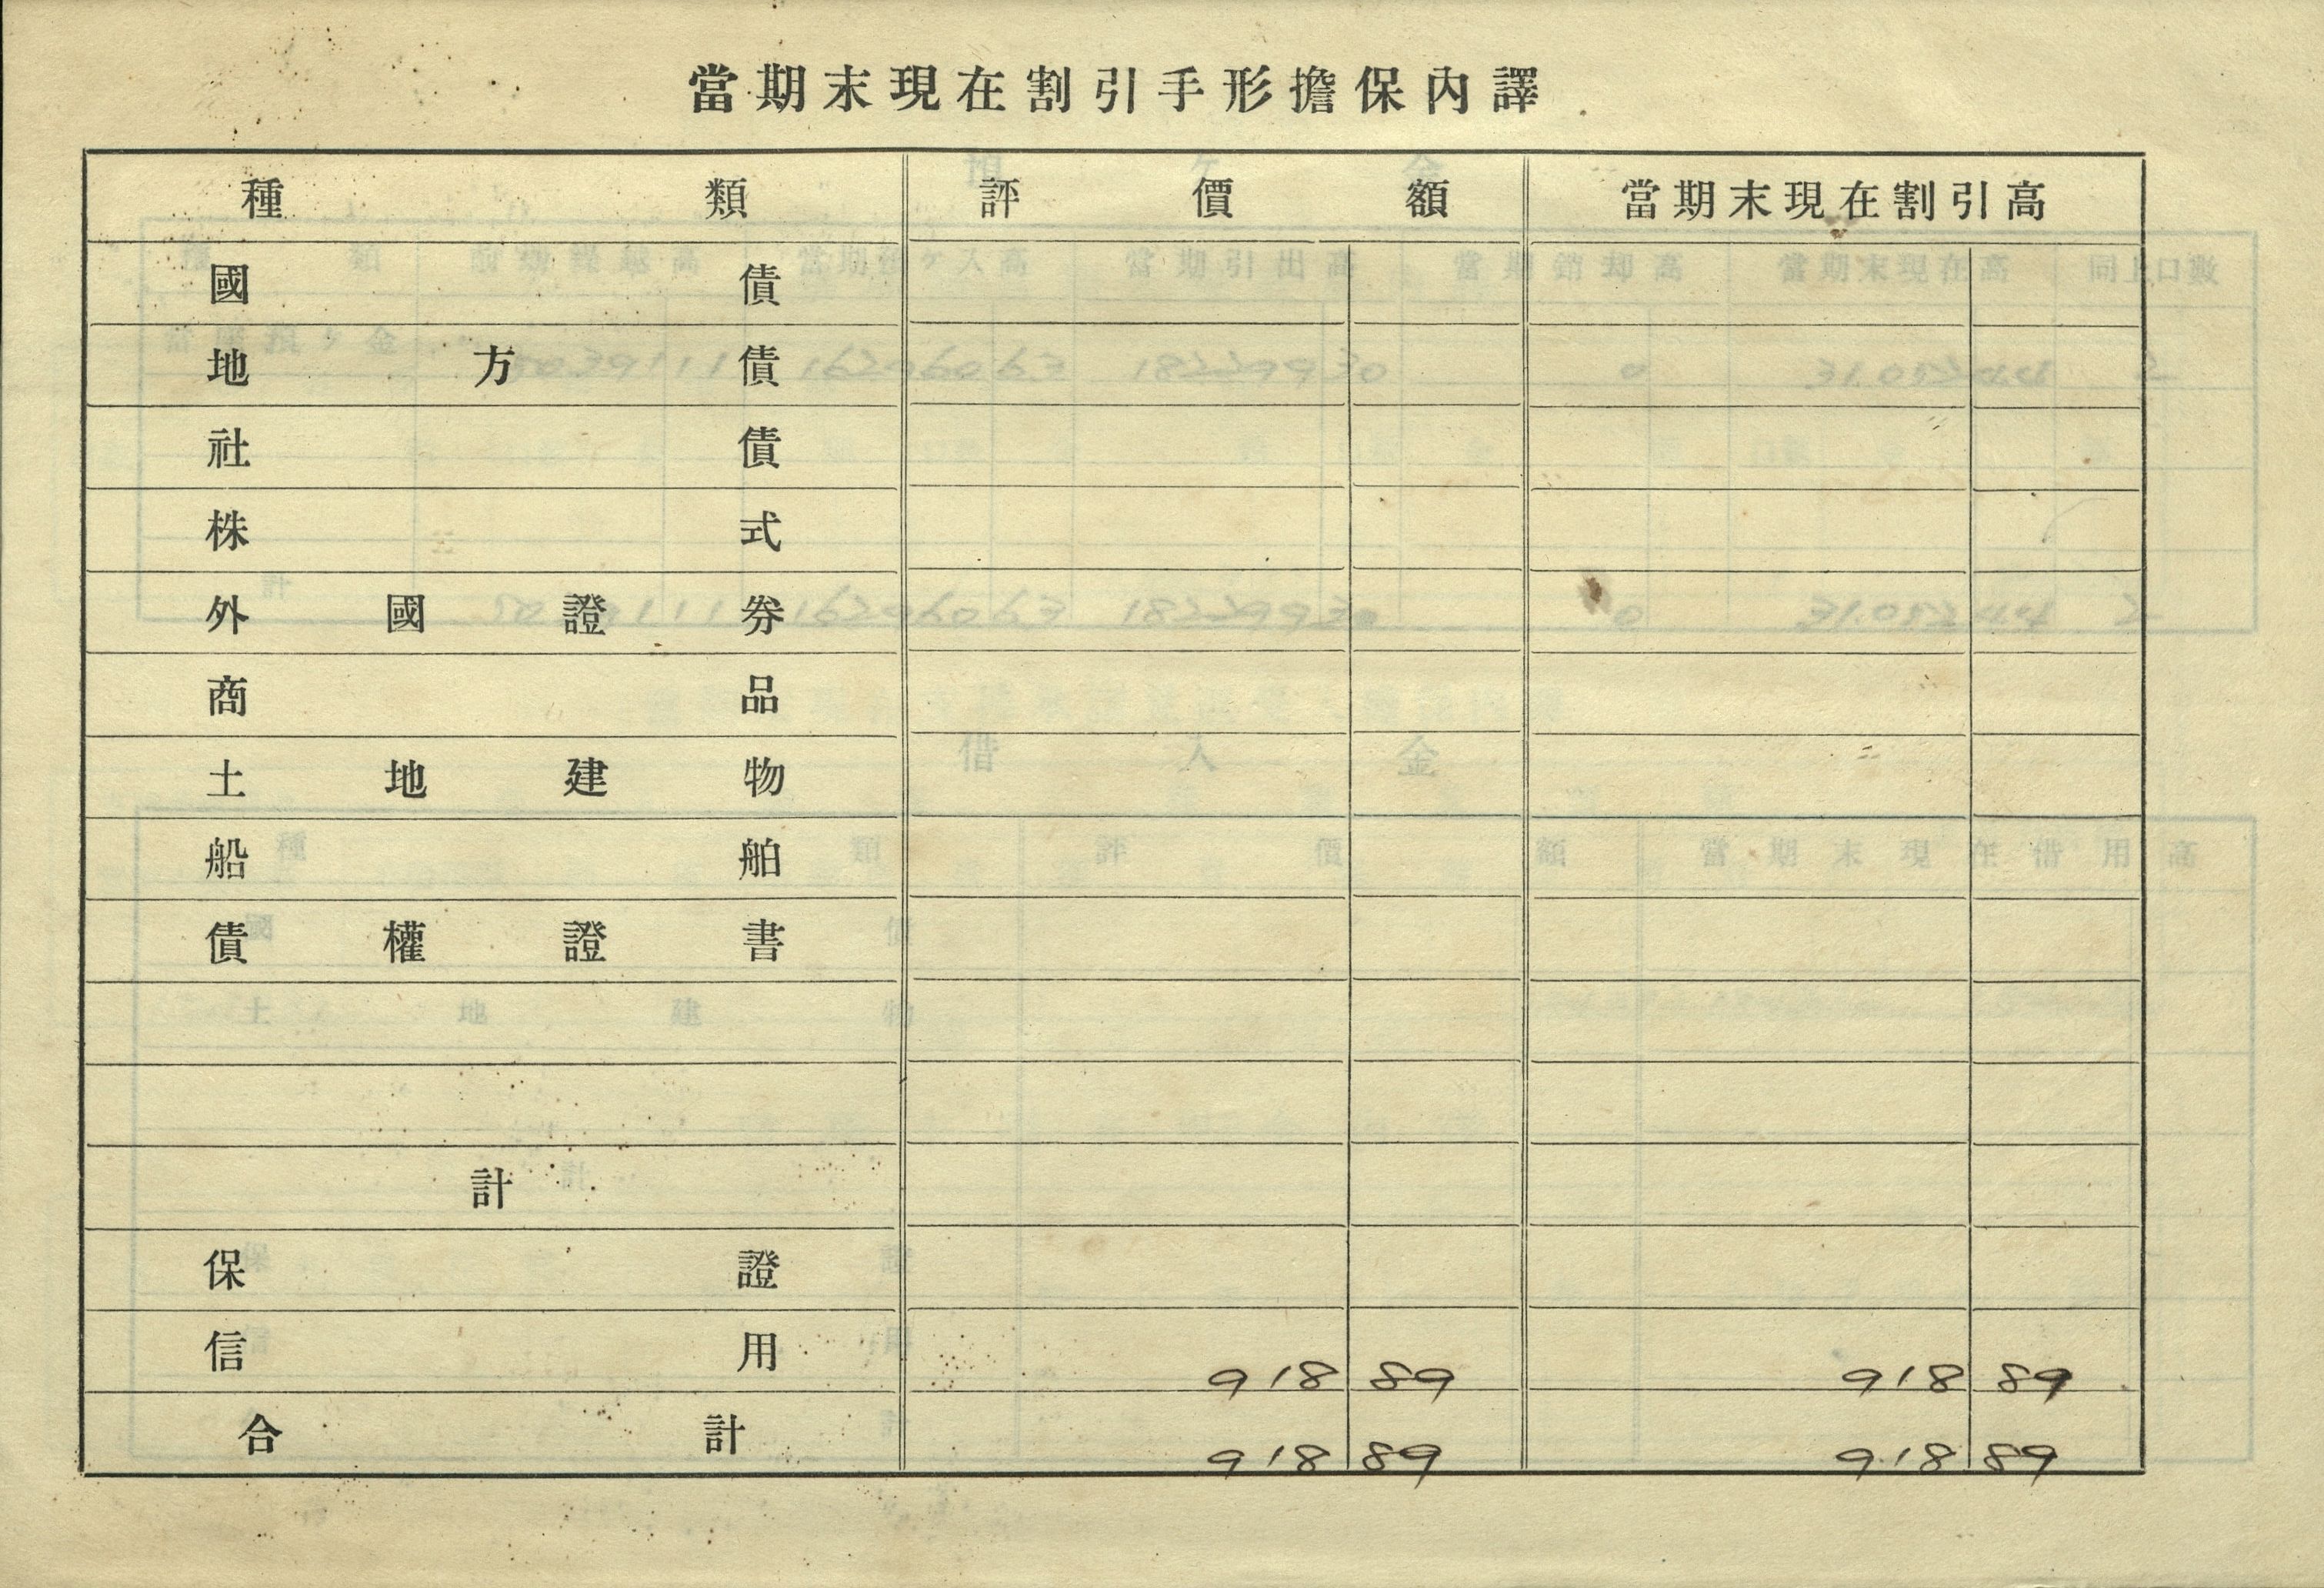 當期末現在割引手形擔保內譯
種類 評價額 當期末現在割引高
國債
地方債
社債
株式
外國證券
商品
土地建物
船舶
債權證書
計
保證
信用 918 89 918 89
合計 918 89 918 89